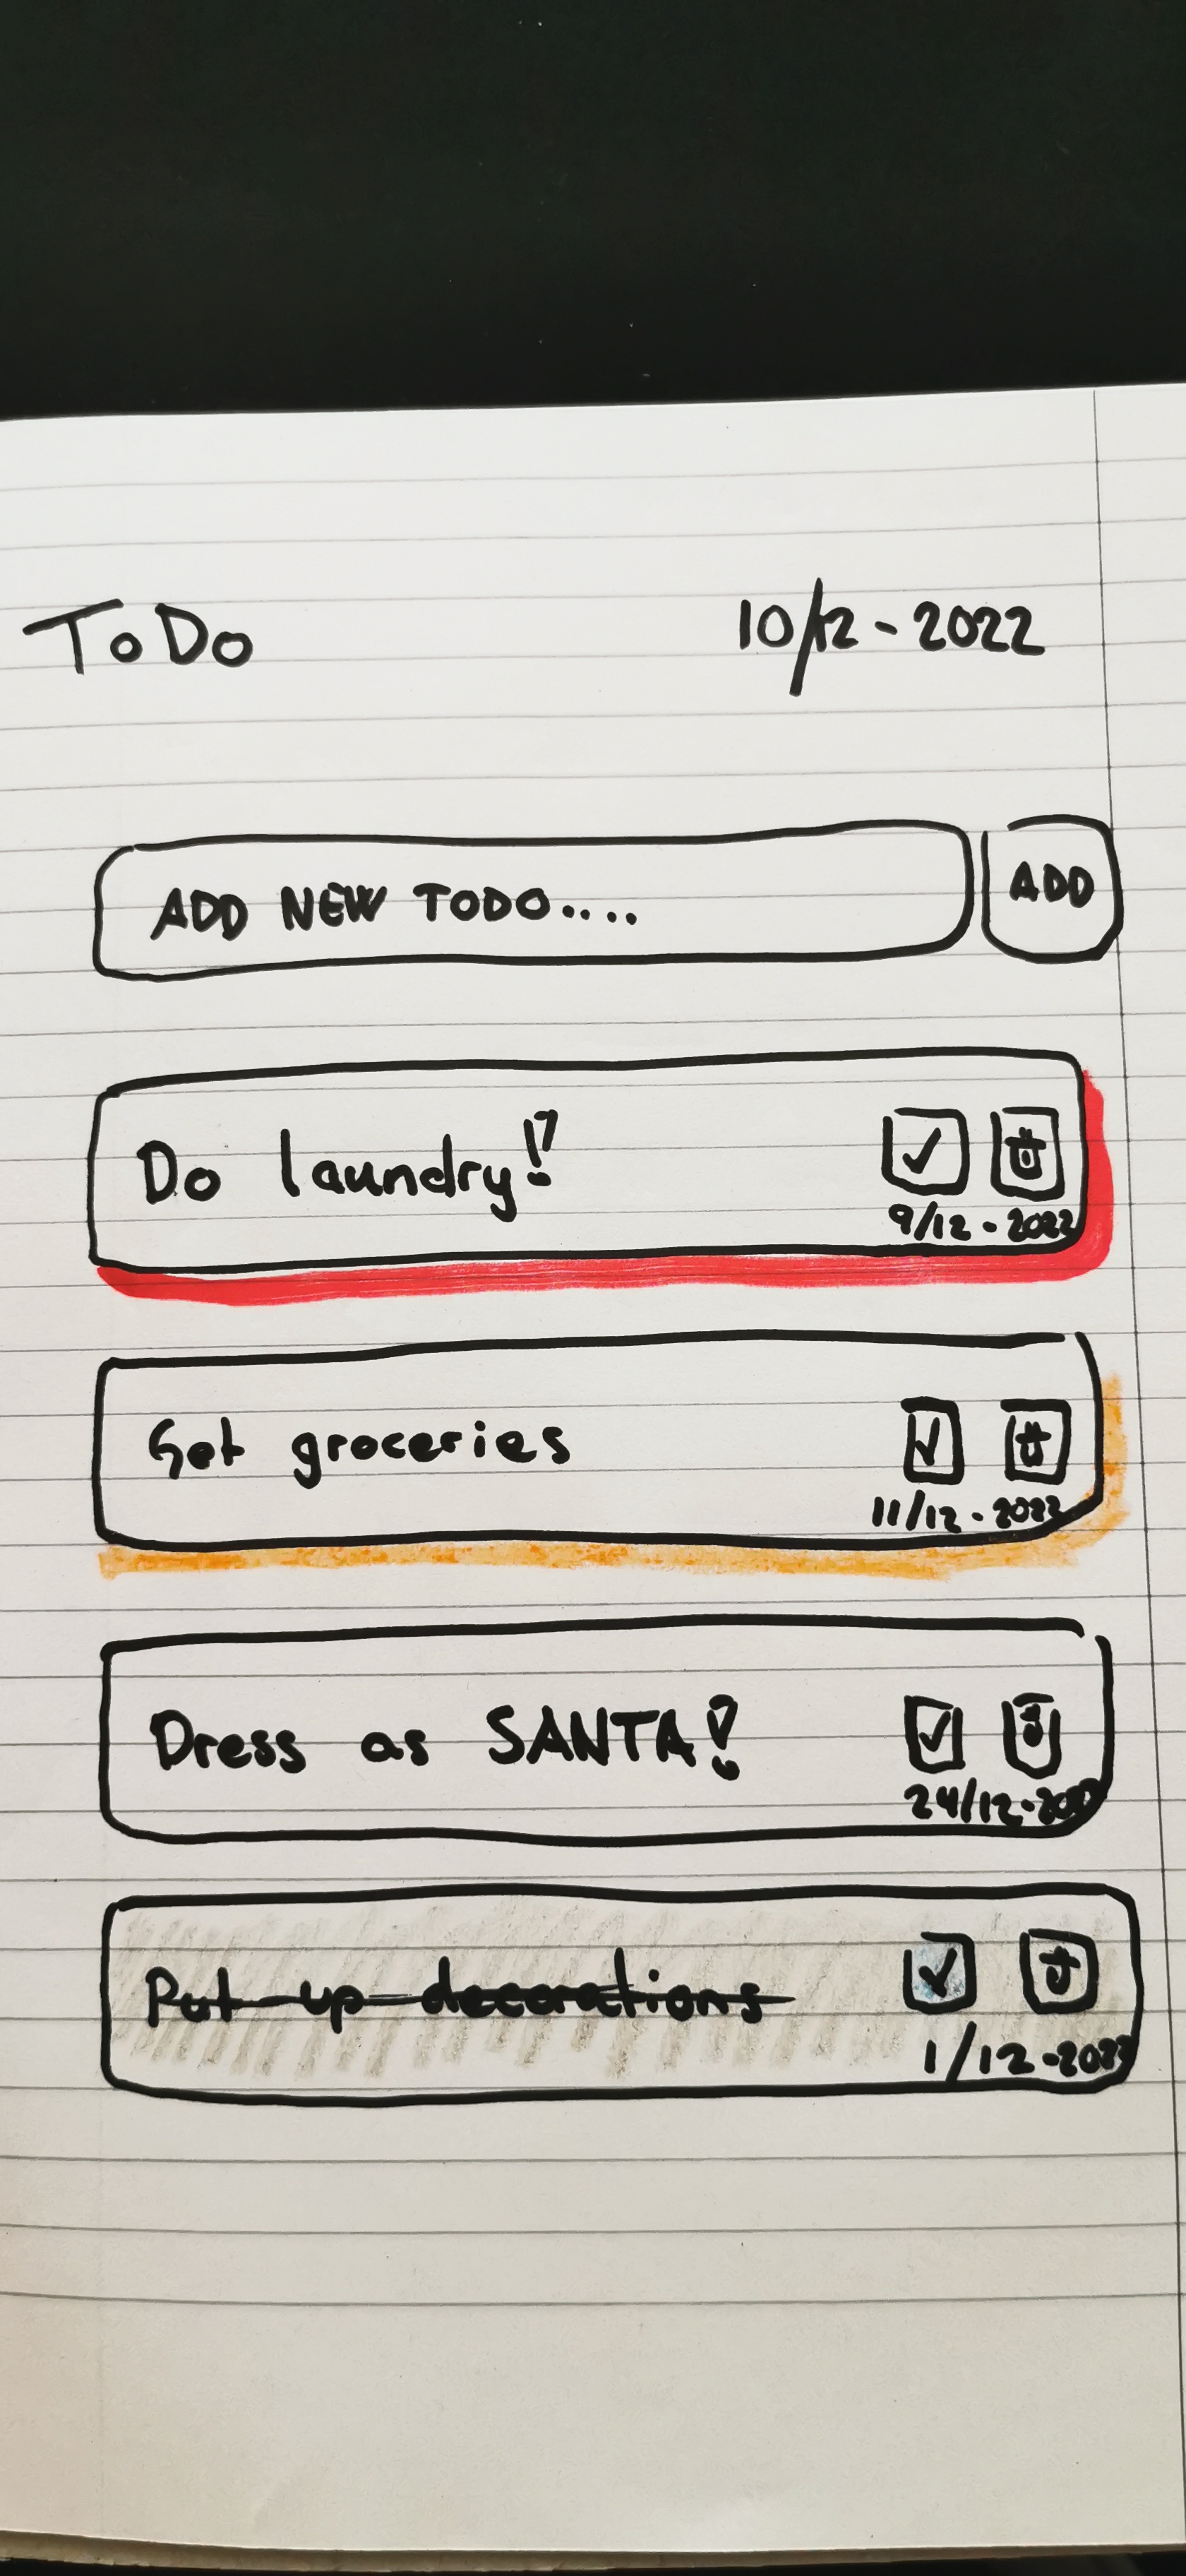 ToDo 10/12-2022
ADD NEW TODO.... ADD
Do laundry!?
9/12-2022
Get groceries
11/12-2022
Dress as SANTA!?
24/12-2022
Put up decorations
1/12-2022